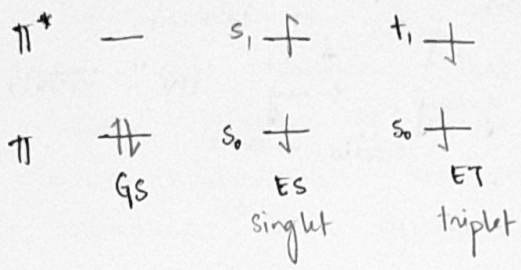 π* S₁ t₁
π S₀ S₀
GS ES ET
singlet triplet